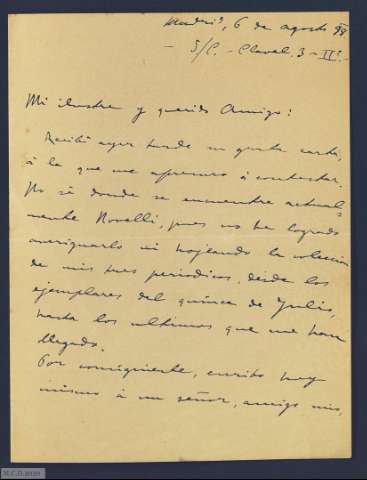 Madrid, 6 de agosto 98
- S/C. - Clavel. 3 - II°. -
Mi ilustre y querido Amigo:
Recibí ayer tarde su grata carta,
á la que me apresuro á contestar.
No sé donde se encuentre actual-
mente Novelli, pues no he logrado
averiguarlo ni hojeando la colección
de mis tres periodicos, desde los
ejemplares del quince de Julio,
hasta los ultimos que me han
llegado.
Por consiguiente, escribo hoy
mismo á un señor, amigo mio,